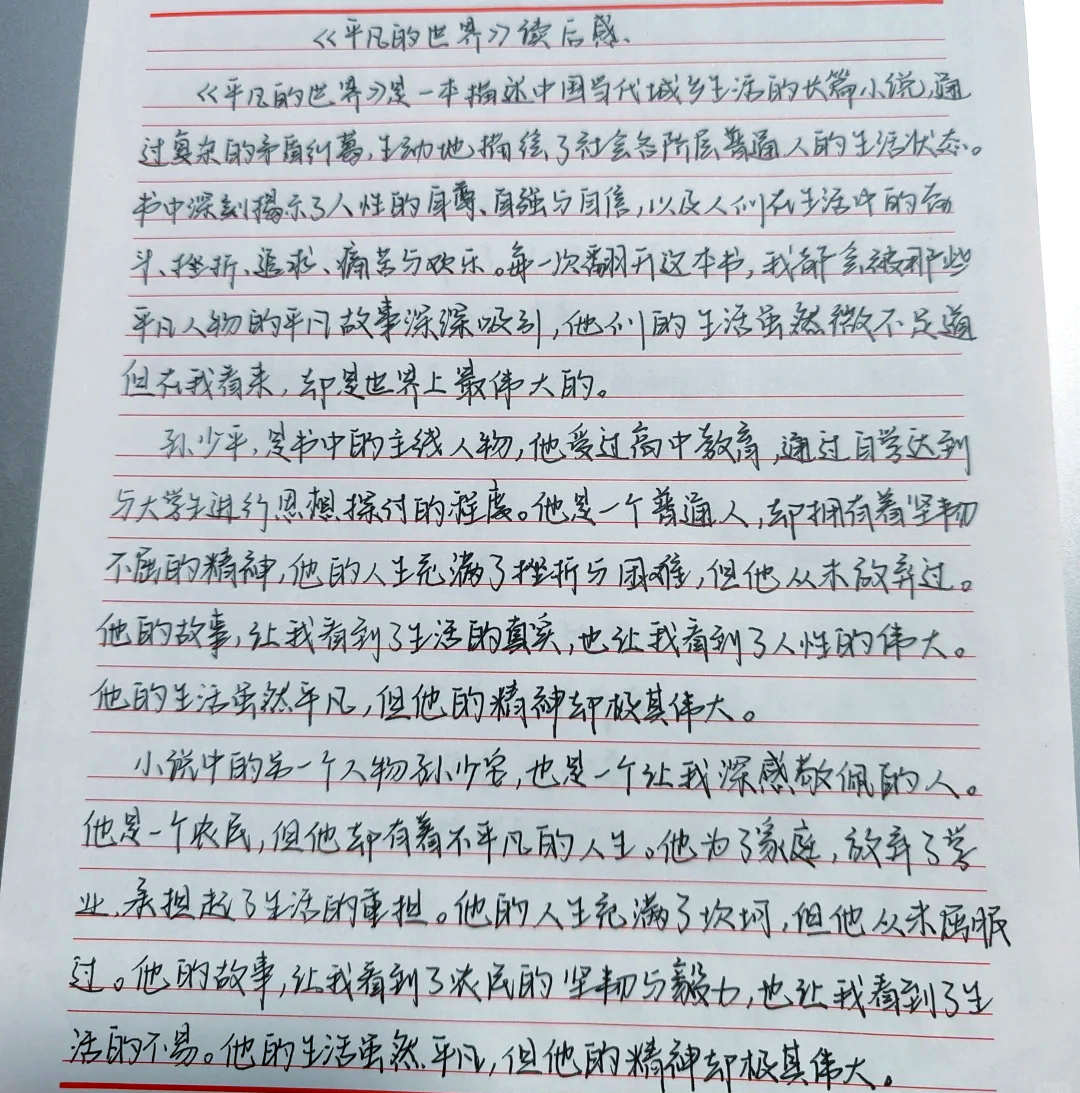 《平凡的世界》读后感、
《平凡的世界》是一本描述中国当代城乡生活的长篇小说,通
过复杂的矛盾纠葛,生动地描绘了社会各阶层普通人的生活状态。
书中深刻揭示了人性的自尊、自强与自信,以及人们在生活中的奋
斗、挫折、追求、痛苦与欢乐。每一次翻开这本书,我都会被那些
平凡人物的平凡故事深深吸引,他们的生活虽然微不足道
但在我看来,却是世界上最伟大的。
孙少平,是书中的主线人物,他受过高中教育,通过自学达到
与大学生进行思想探讨的程度。他是一个普通人,却拥有着坚韧
不屈的精神,他的人生充满了挫折与困难,但他从未放弃过。
他的故事,让我看到了生活的真实,也让我看到了人性的伟大。
他的生活虽然平凡,但他的精神却极其伟大。
小说中的另一个人物孙少安,也是一个让我深感敬佩的人。
他是一个农民,但他却有着不平凡的人生。他为了家庭,放弃了学
业,承担起了生活的重担。他的人生充满了坎坷,但他从未屈服
过。他的故事,让我看到了农民的坚韧与毅力,也让我看到了生
活的不易。他的生活虽然平凡,但他的精神却极其伟大。